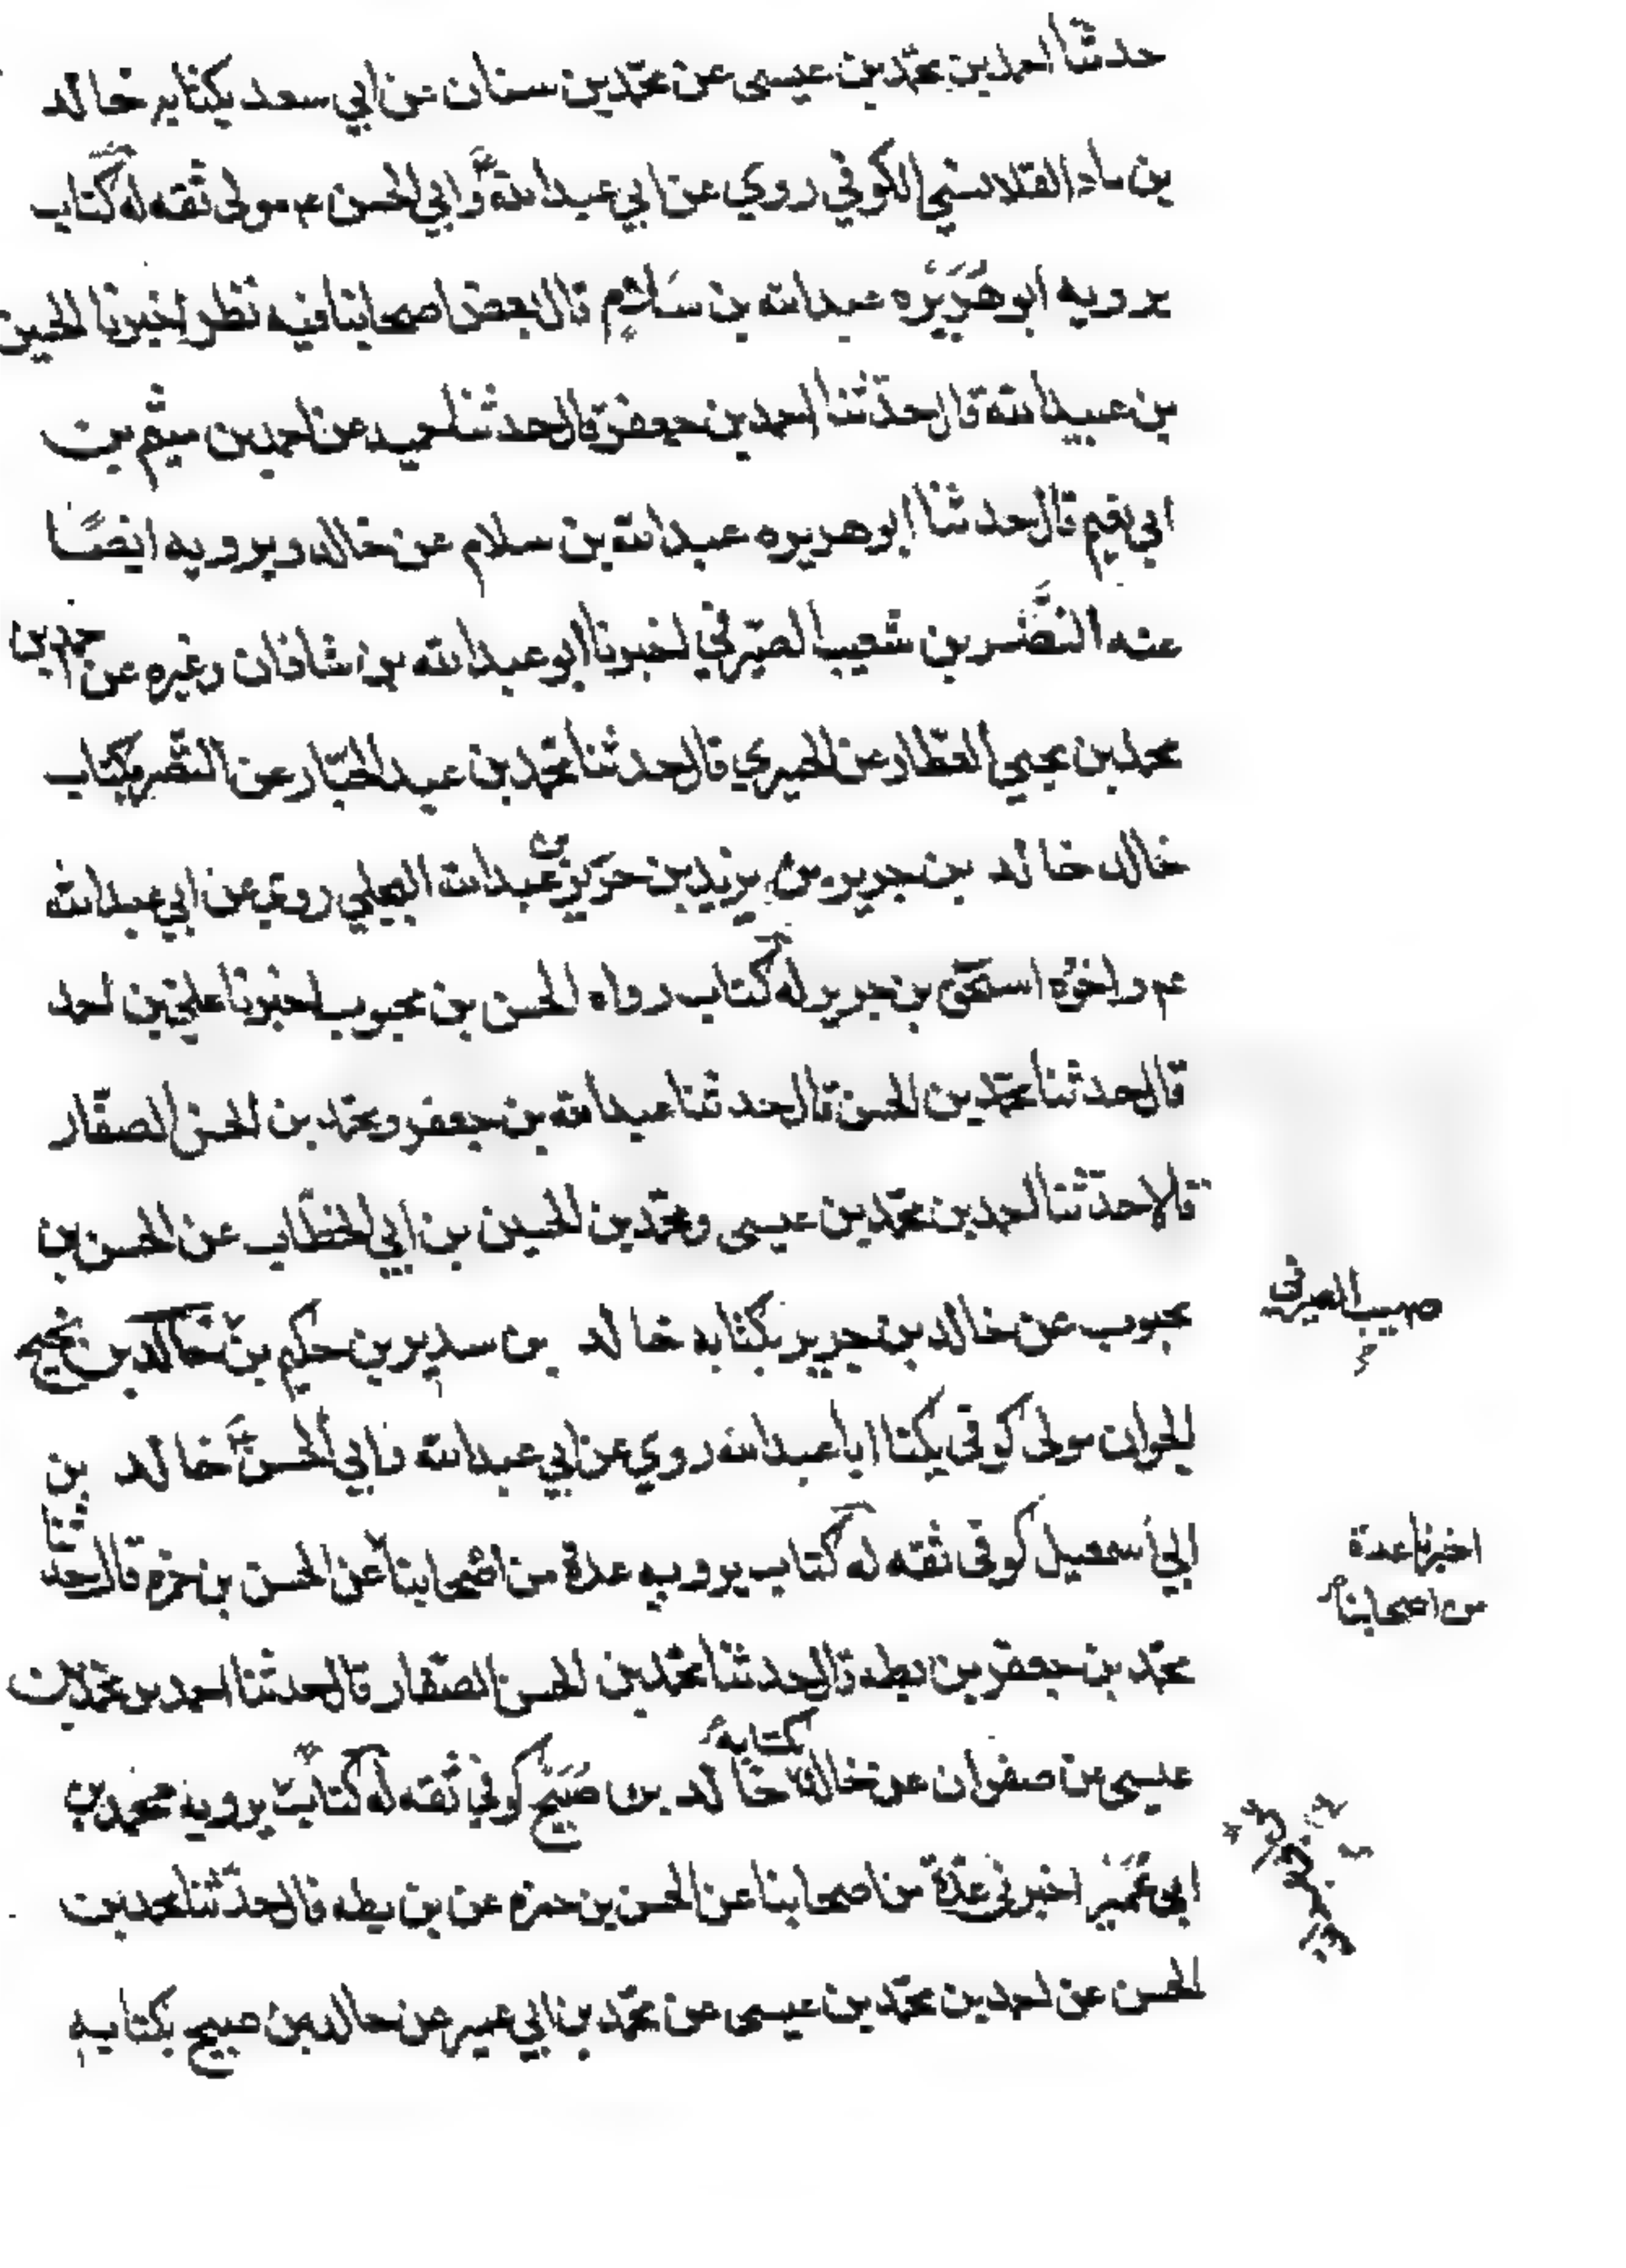 حدثنا احمد بن محمّد بن عيسى عن محمّد بن سنان عن ابي سعد بكتابه خالد
بن ماد القلانسي الكوفي روي عن ابي عبد الله وابي الحسن عم مولى ثقه له كتاب
يرويه ابو هُرَيْرَه عبد الله بن سَلَامٍ قال بعض اصحابنا فيه نظر اخبرنا الحسين
بن عبيد الله قال حدّثنا احمد بن جعفر قال حدثنا حميد عن احمد بن ميثم بن
ابي نعيم قال حدثنا ابو هريره عبد الله بن سلام عن خالد ويرويه ايضًا
عنه النَّضْر بن شعيب الصيّرفي اخبرنا ابو عبد الله بن شاذان وغيره عن احمد بن
محمد بن يحيى العطّار عن الحميري قال حدثنا محمّد بن عبد الجبّار عن النّضر بكتاب
خالد خالد بن جرير بن يزيد بن جرير بن عبد الله البجلي روي عن ابي عبد الله
عم واخوه اسحق بن جرير له كتاب رواه الحسن بن محبوب اخبرنا علي بن احمد
قال حدثنا محمّد بن الحسن قال حدثنا عبد الله بن جعفر ومحمّد بن الحسن الصفّار
قالا حدّثنا احمد بن محمّد بن عيسى ومحمّد بن الحسين بن ابي الخطّاب عن الحسن بن
محبوب عن خالد بن جرير بكتابه خالد بن سدير بن حكيم بن خالد بن نجيح
صهيب الصرفى
الجوان مولى كوفى يكنا ابا عبد الله روي عن ابي عبد الله وابي الحسن خالد بن
ابي اسمعيل كوفى ثقه له كتاب يرويه عدة من اصحابنا عن الحسن بن حمزه قال حدثنا
اخبرنا عدة
من اصحابنا
محمّد بن جعفر بن بطه قال حدثنا محمّد بن الحسن الصفّار قال حدثنا احمد بن محمّد بن
عيسى عن صفوان عن خالد كتابه خالد بن صَبِيْح كوفي ثقه له كتاب يرويه محمد بن
ابي عُمَيْر اخبرني عدّة من اصحابنا عن الحسن بن حمزه عن بن بطه قال حدّثنا محمد بن
الحسن عن احمد بن محمّد بن عيسى عن محمّد بن ابي عمير عن خالد بن صبيح بكتابه